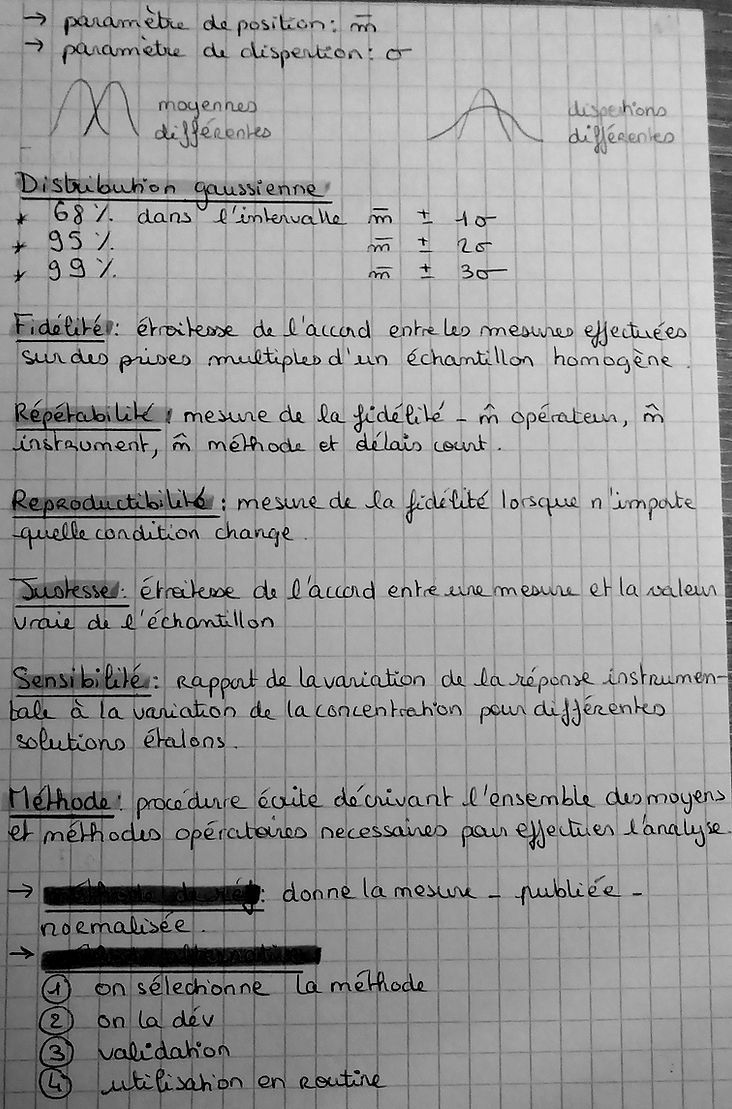 → paramètre de position : m̅
→ paramètre de dispertion : σ
moyennes
différentes
dispertions
différentes
Distribution gaussienne
* 68 %. dans l'intervalle m̅ ± 1σ
* 95 %. m̅ ± 2σ
* 99 %. m̅ ± 3σ
Fidélité : étroitesse de l'accord entre les mesures effectuées
sur des prises multiples d'un échantillon homogène.
Répétabilité : mesure de la fidélité - m̂ opérateur, m̂
instrument, m̂ méthode et délais court.
Reproductibilité : mesure de la fidélité lorsque n'importe
quelle condition change.
Justesse : étroitesse de l'accord entre une mesure et la valeur
vraie de l'échantillon
Sensibilité : Rapport de la variation de la réponse instrumen-
tale à la variation de la concentration pour différentes
solutions étalons.
Méthode : procédure écrite décrivant l'ensemble des moyens
et méthodes opératoires necessaires pour effectuer l'analyse.
→ : donne la mesure - publiée -
normalisée.
→
① on sélectionne la méthode
② on la dév
③ validation
④ utilisation en routine